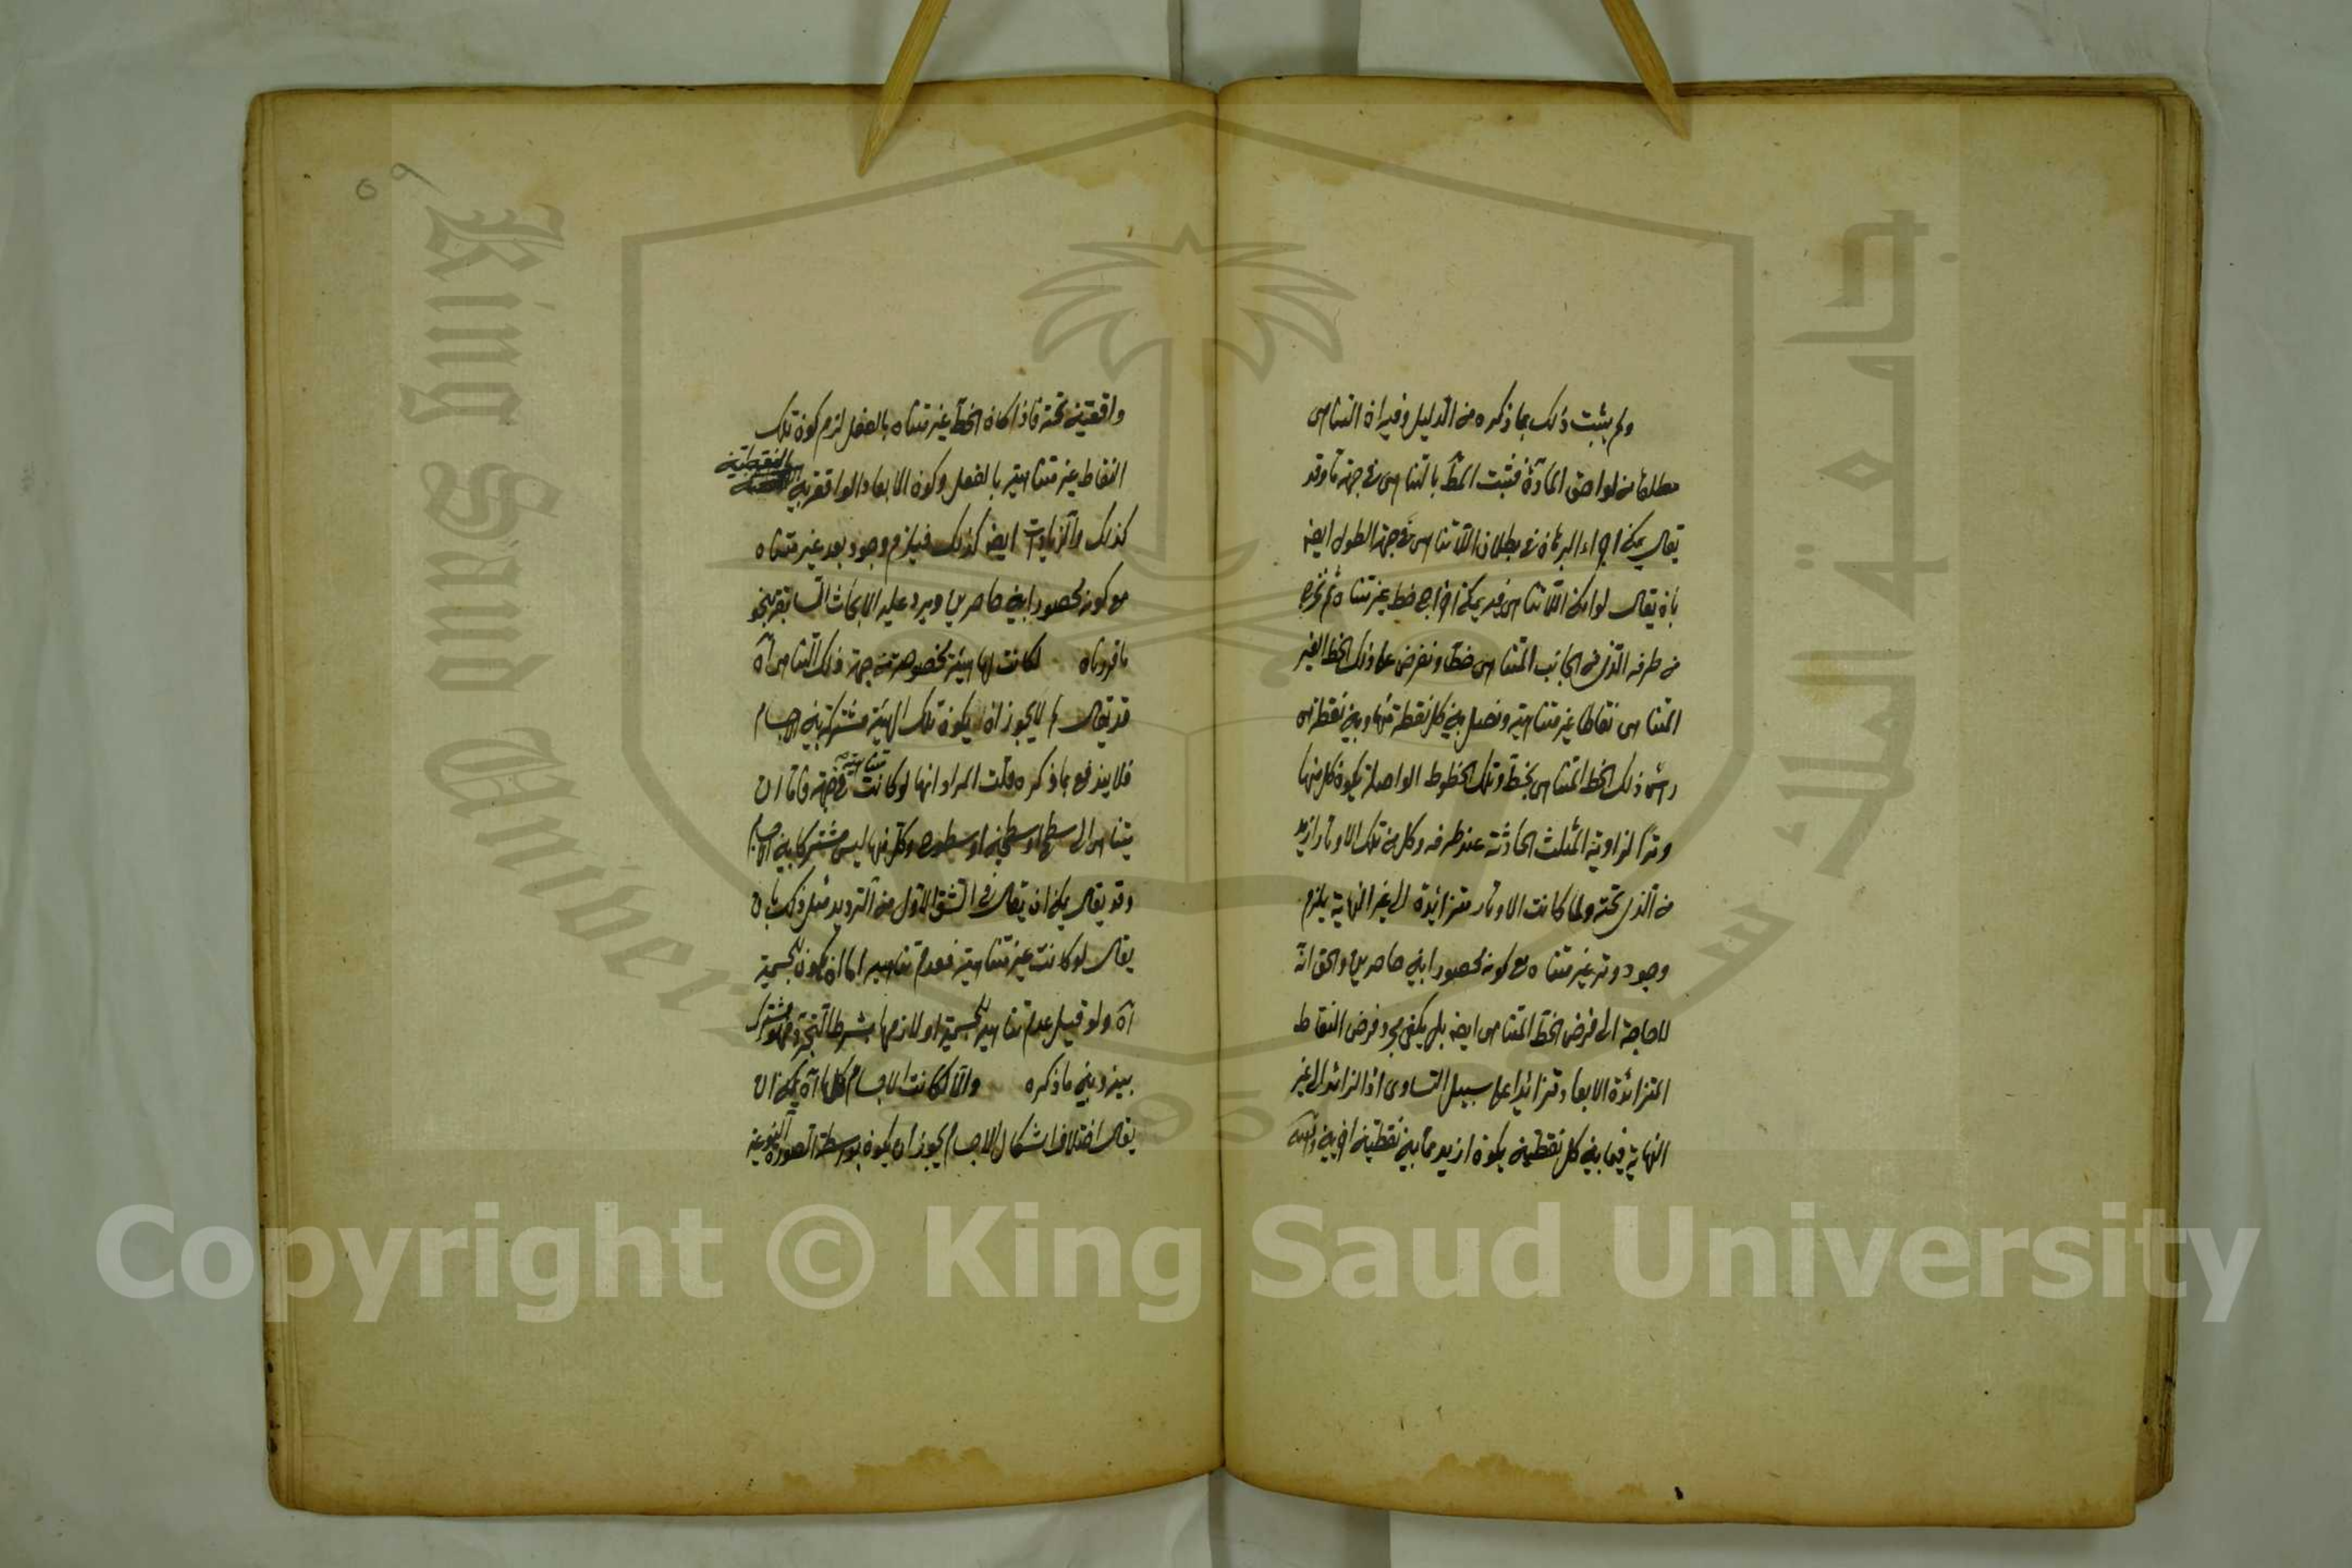 ولم يثبت ذلك بما ذكره من الدليل وفيه ان التناهى
مطلقا من لواحق المادّة فثبت المط بالتناهى فى جهة ما وقد
يقال يمكن اجراء البرهان فى بطلان اللاتناهى فى جهة الطول ايضا
بان يقال لو امكن اللاتناهى فيه يمكن اخراج خط غير متناه ثم نخرج
من طرفه الّذى فى الجانب المتناهى خطّا ونفرض على ذلك الخط الغير
المتناهى نقاطا غير متناهية ونصل بين كل نقطة منها وبين نقطة هى
رأس ذلك الخط المتناهى بخطّ وتلك الخطوط الواصلة يكون كل منها
وترًا لزاوية المثلث الحادثة عند طرفه وكل من تلك الاوتار ازيد
من الّذى تحته ولما كانت الاوتار متزائدة الى غير النهاية يلزم
وجود وتر غير متناه مع كونه محصورا بين حاصرين والحق انّه
لا حاجة الى فرض الخطّ المتناهى ايضا بل يكفى مجرد فرض النقاط
المتزائدة الابعاد تزائدا على سبيل التساوى اذ الزائد الى غير
النهاية فيما بين كل نقطتين يكون ازيد ممّا بين نقطتين اخريين
٥٩
واقعتين تحته فاذا كان الخطّ غير متناه بالفعل لزم كون تلك
النقاط غير متناهية بالفعل وكون الابعاد الواقعة بين النقطتين
كذلك والزيادات ايضا كذلك فيلزم وجود بعد غير متناه
مع كونه محصورا بين حاصرين ويرد عليه الابحاث السابقة بنحو
ما قررناه لكانت لها هيئة مخصوصة من جهة ذلك التناهى آه
قد يقال لم لا يجوز ان يكون تلك الهيئة مشتركة بين الاجسام
فلا يندفع بما ذكره قلت المراد انها لو كانت متناهية فى جهة فاما ان
يتناهى الى سطح او سطحين او سطوح وكل منها ليس مشتركا بين الاجسام
وقد يقال يمكن ان يقال فى الشق الاول من الترديد مثل ذلك بان
يقال لو كانت غير متناهية فعدم تناهيه اما ان يكون للجسمية
آه ولو قيل عدم تناهيه للجسمية او للازمها بشرط التجرد فهو مشترك
بينه وبين ما ذكره والا لكانت الاجسام كلها آه يمكن ان
يقال اختلاف اشكال الاجسام يجوز ان يكون بواسطة الصورة النوعية
King Saud University
Copyright © King Saud University